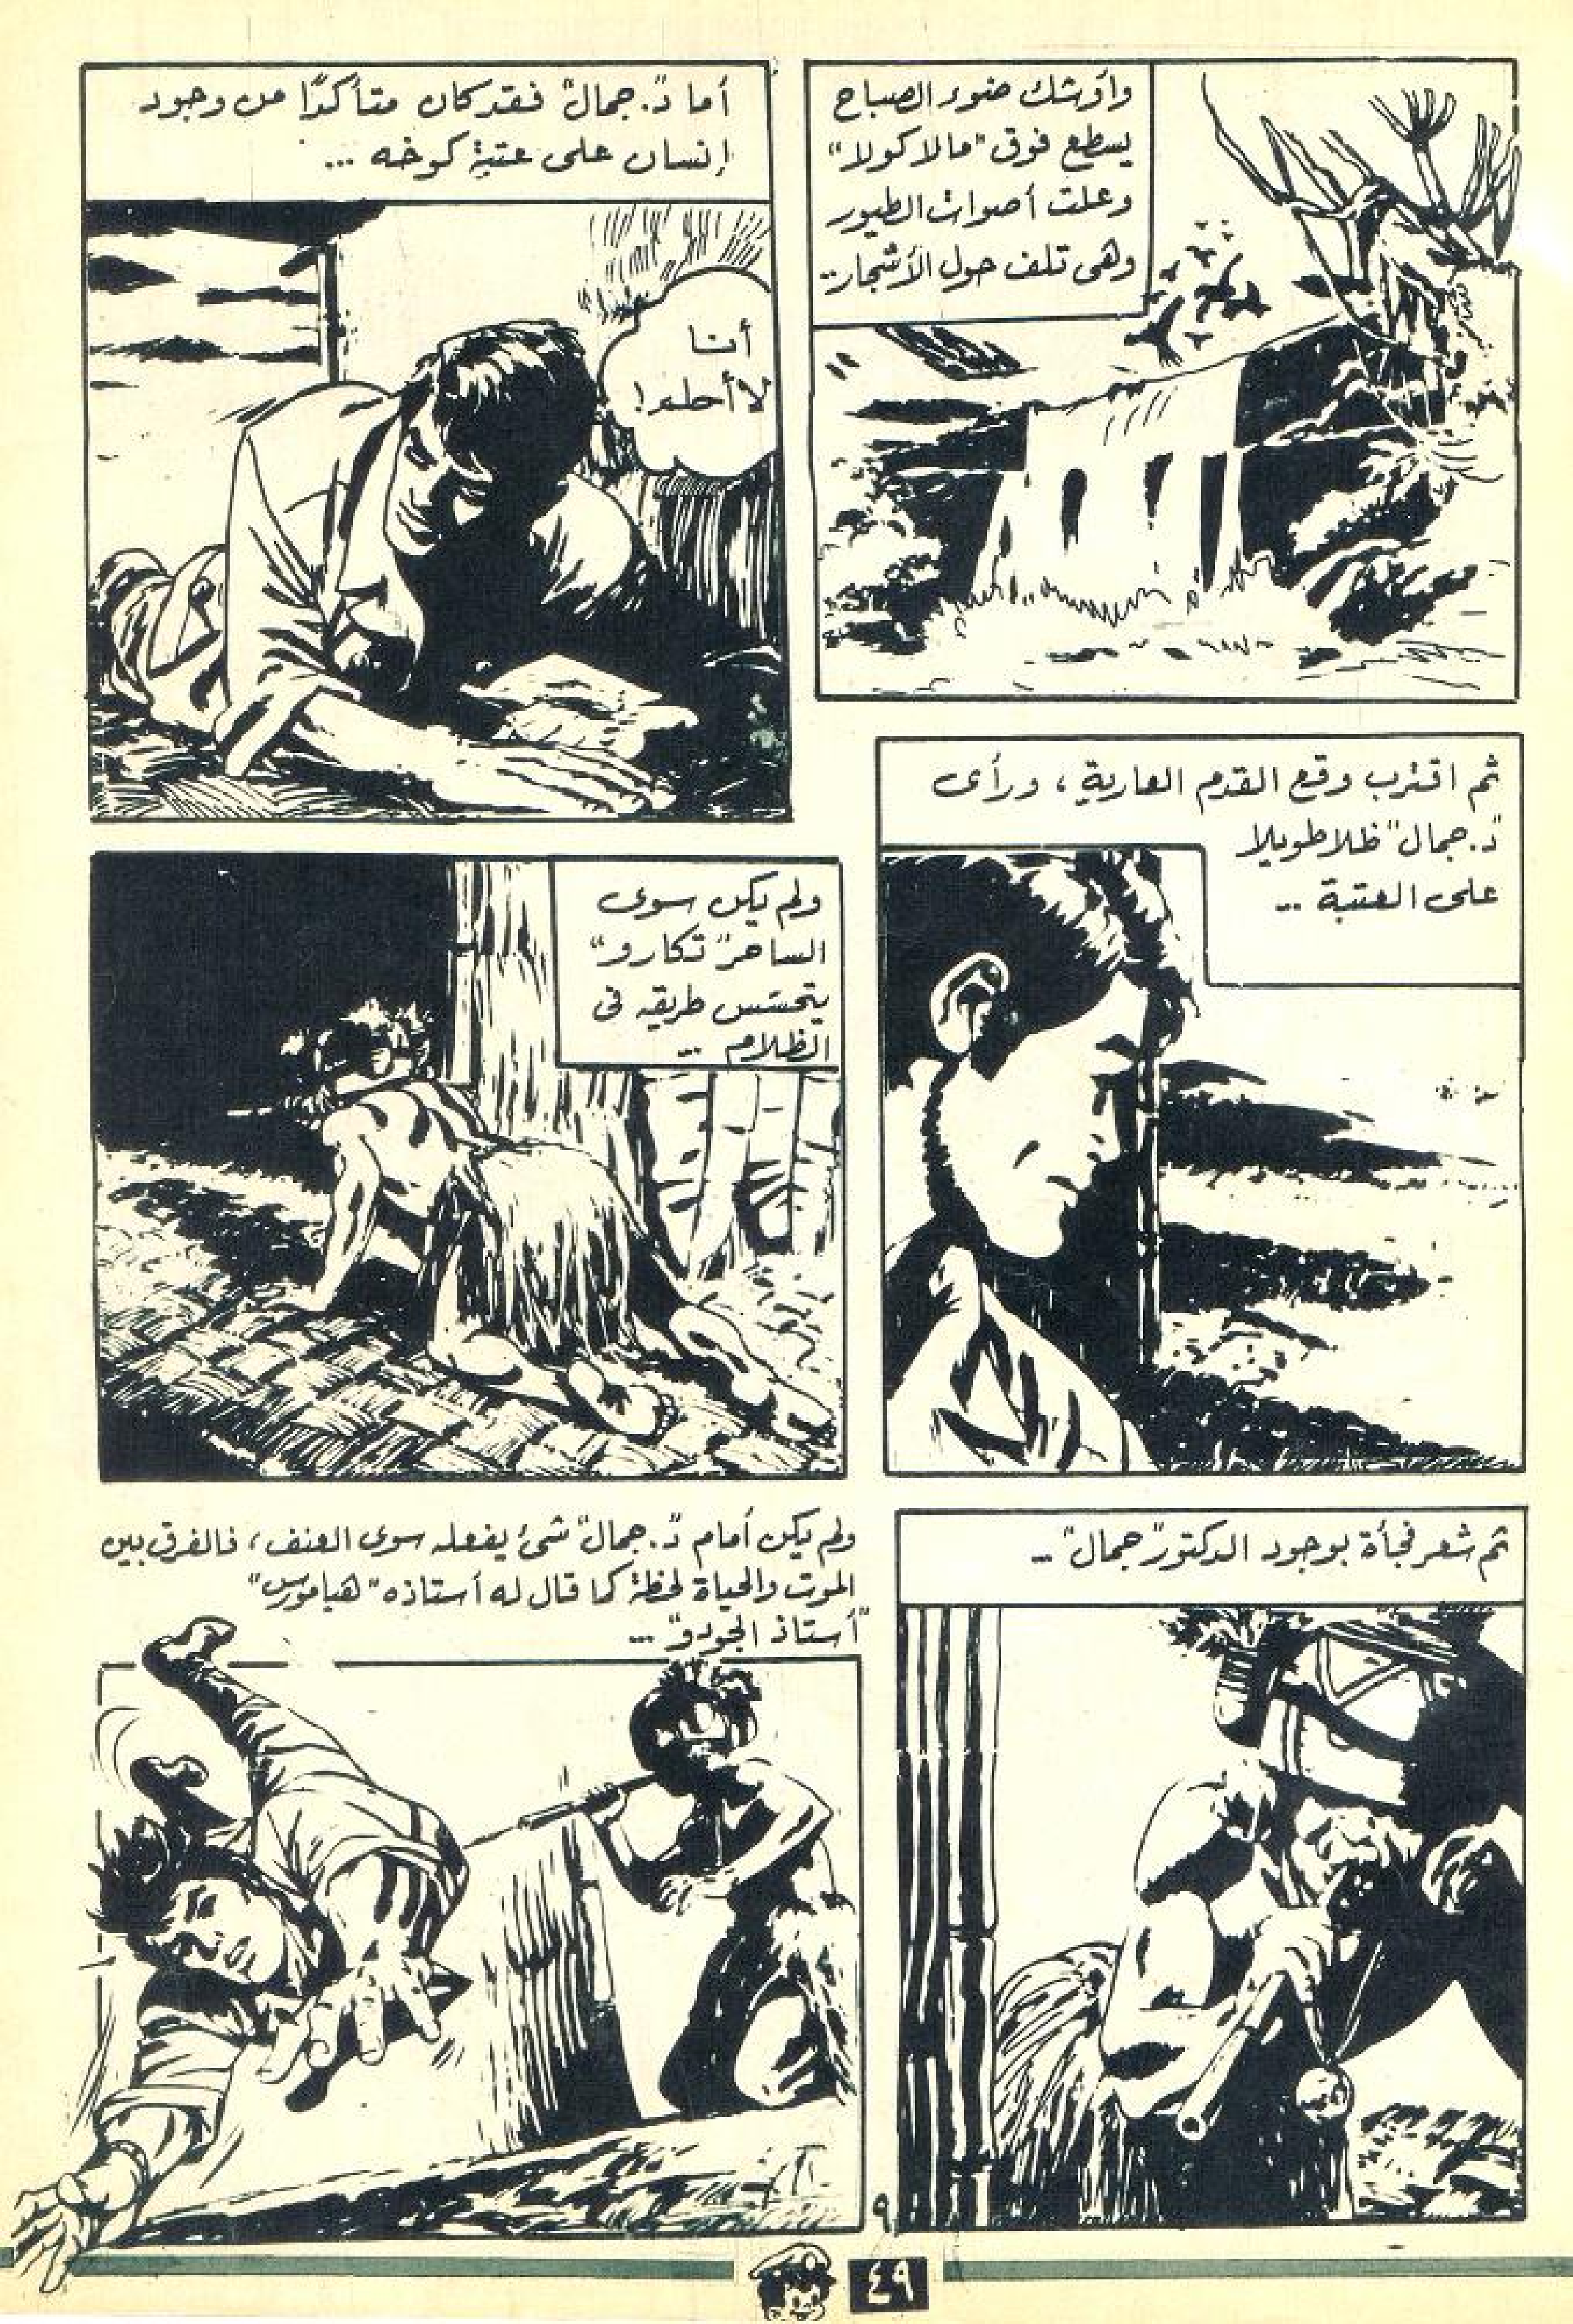 وأوشك ضوء الصباح
يسطع فوق "مالاكولا"
وعلت أصوات الطيور
وهى تلف حول الأشجار..
أما "د. جمال" فقد كان متأكدًا من وجود
إنسان على عتبة كوخه ...
أنا
لا أحلم!
ثم اقترب وقع القدم العارية، ورأى
"د. جمال" ظلا طويلا
على العتبة ..
ولم يكن سوى
الساحر "تكارو"
يتحسس طريقه فى
الظلام ..
ثم شعر فجأة بوجود الدكتور "جمال" ..
ولم يكن أمام "د. جمال" شئ يفعله سوى العنف، فالفرق بين
الموت والحياة لحظة كما قال له أستاذه "هيامورس"
"أستاذ الجودو" ...
٩
٤٩